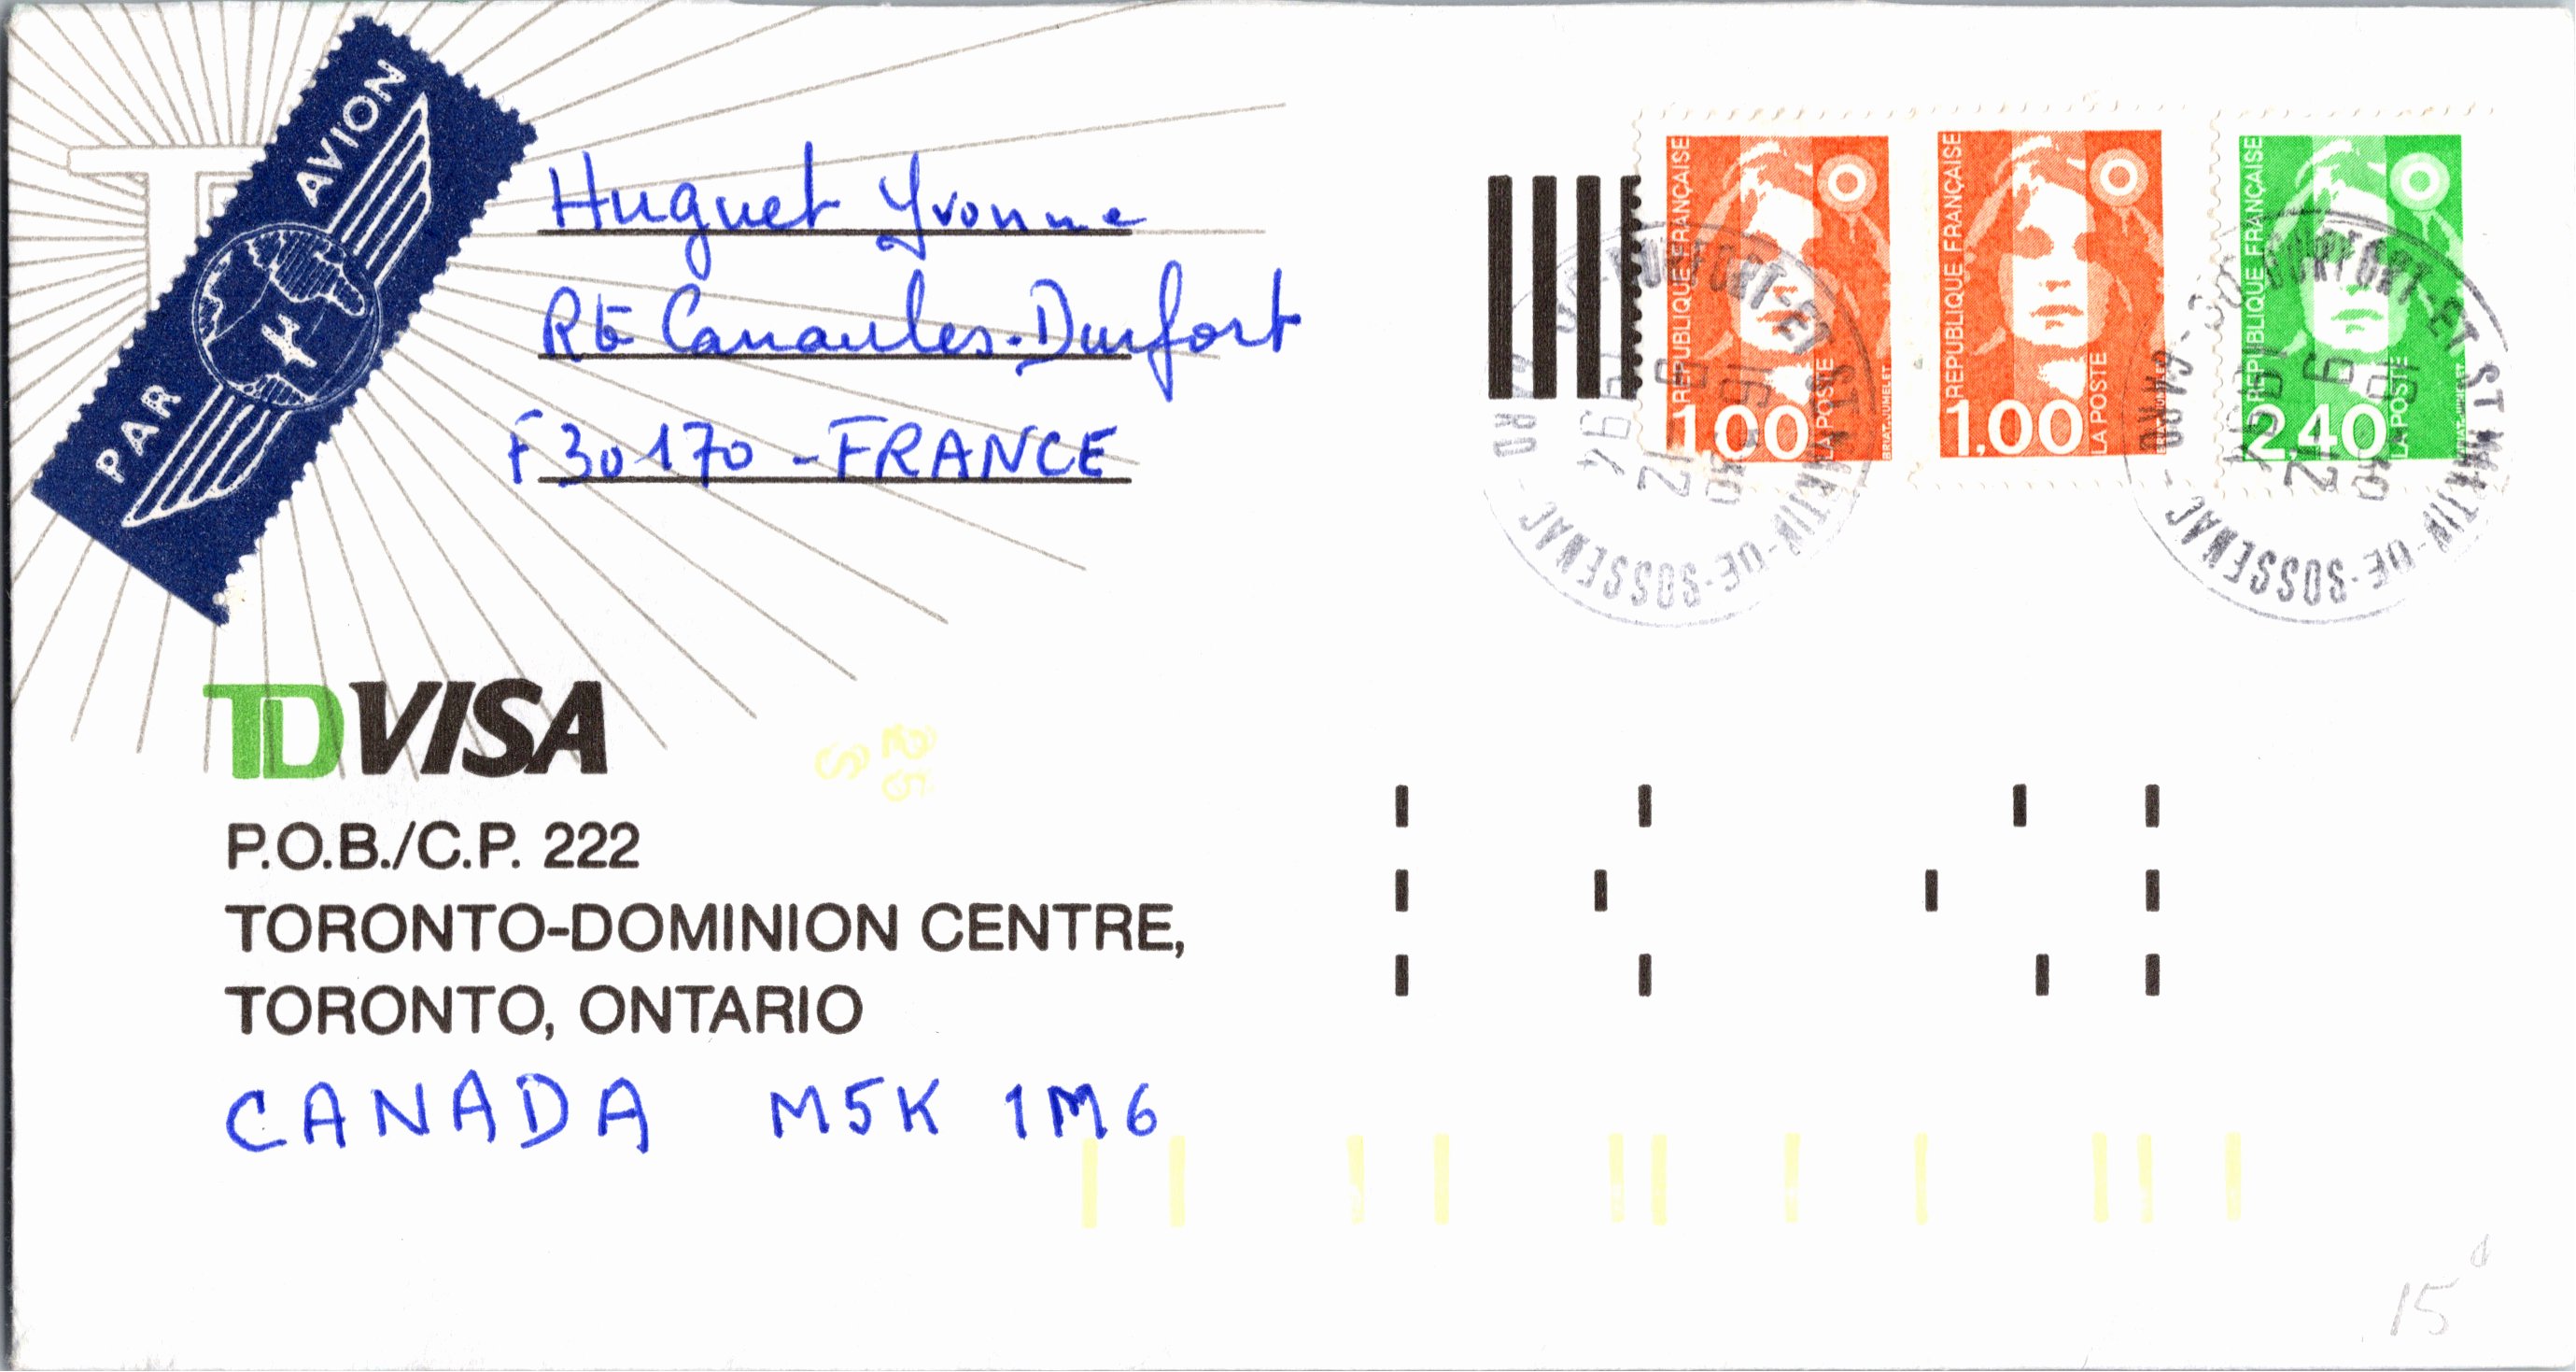 PAR AVION
Huguet Yvonne
Rte Canaules-Durfort
F 30170 - FRANCE
REPUBLIQUE FRANÇAISE
1,00
LA POSTE
BRIAT-JUMELET
REPUBLIQUE FRANÇAISE
1,00
LA POSTE
REPUBLIQUE FRANÇAISE
2,40
LA POSTE
DURFORT-ET ST MARTIN-DE-SOSSENAC - GARD
1994
DURFORT-ET ST MARTIN-DE-SOSSENAC - GARD - 30
1994
TD VISA
P.O.B./C.P. 222
TORONTO-DOMINION CENTRE,
TORONTO, ONTARIO
CANADA M5K 1M6
15